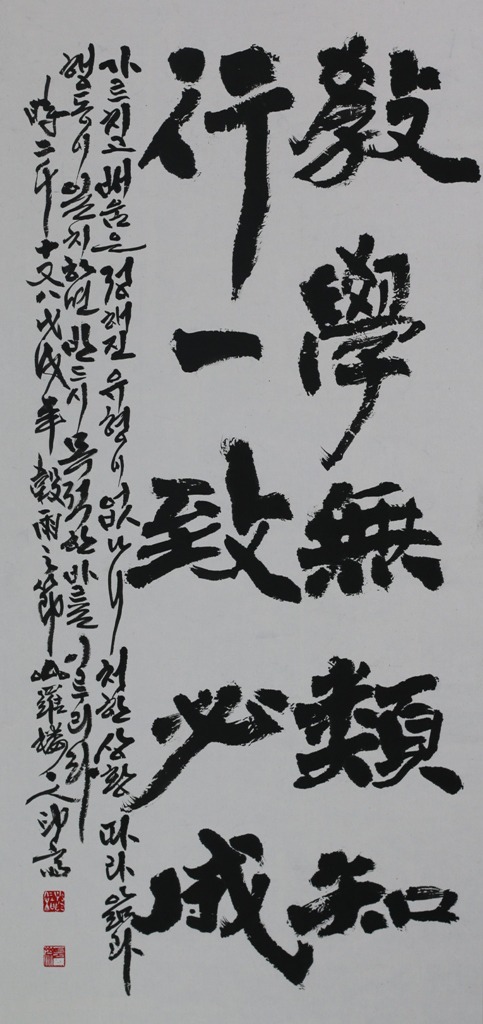 教學無類知
行一致必成
가르치고 배움은 정해진 유형이 없나니 처한 상황 따라 앎과
행동이 일치하면 반드시 목적한 바를 이루리라
時二千十又八戊戌年 穀雨之節 山羅樓主人